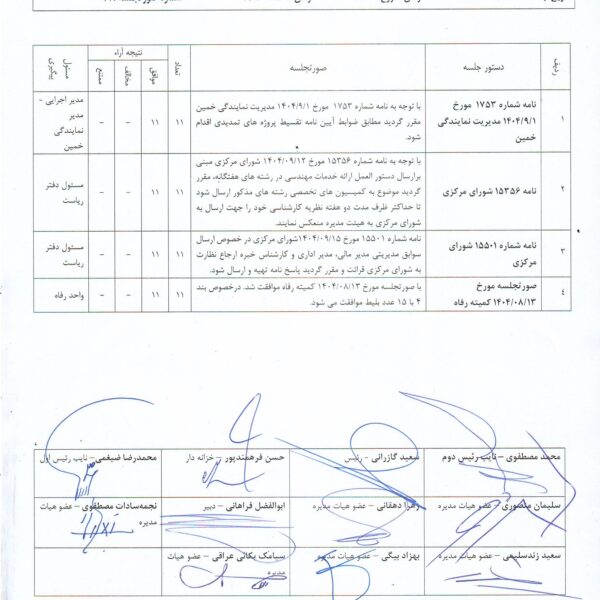 ردیف
دستور جلسه
صورتجلسه
تعداد
نتیجه آراء
موافق
مخالف
ممتنع
مسئول
پیگیری
۱
نامه شماره ۱۷۵۳ مورخ
۱۴۰۴/۹/۱ مدیریت نمایندگی
خمین
با توجه به نامه شماره ۱۷۵۳ مورخ ۱۴۰۴/۹/۱ مدیریت نمایندگی خمین
مقرر گردید مطابق ضوابط آیین نامه تقسیط پروژه های تمدیدی اقدام
شود.
۱۱
۱۱
-
-
مدیر اجرایی -
مدیر
نمایندگی
خمین
۲
نامه ۱۵۳۵۶ شورای مرکزی
با توجه به نامه شماره ۱۵۳۵۶ مورخ ۱۴۰۴/۰۹/۱۲ شورای مرکزی مبنی
برارسال دستور العمل ارائه خدمات مهندسی در رشته های هفتگانه، مقرر
گردید موضوع به کمیسیون های تخصصی رشته های مذکور ارسال شود
تا حداکثر ظرف مدت دو هفته نظریه کارشناسی خود را جهت ارسال به
شورای مرکزی به هیئت مدیره منعکس نمایند.
۱۱
۱۱
-
-
مسئول دفتر
ریاست
۳
نامه شماره ۱۵۵۰۱ شورای
مرکزی
نامه شماره ۱۵۵۰۱ مورخ ۱۴۰۴/۰۹/۱۵شورای مرکزی در خصوص ارسال
سوابق مدیریتی مدیر مالی، مدیر اداری و کارشناس خبره ارجاع نظارت
به شورای مرکزی قرائت و مقرر گردید پاسخ نامه تهیه و ارسال شود.
۱۱
۱۱
-
-
مسئول دفتر
ریاست
۴
صورتجلسه مورخ
۱۴۰۴/۰۸/۱۳ کمیته رفاه
با صورتجلسه مورخ ۱۴۰۴/۰۸/۱۳ کمیته رفاه موافقت شد. درخصوص بند
۴ با ۱۵ عدد بلیط موافقت می شود.
۱۱
۱۱
-
-
واحد رفاه
محمد مصطفوی – نایب رئیس دوم
سعید گازرانی - رئیس
حسن فرهمندپور – خزانه دار
محمدرضا ضیغمی – نایب رئیس اول
سلیمان منصوری – عضو هیات مدیره
زهرا دهقانی – عضو هیات مدیره
ابوالفضل فراهانی – دبیر
نجمه‌سادات مصطفوی – عضو هیات
مدیره
سعید زندسلیمی – عضو هیات مدیره
بهزاد بیگی – عضو هیات مدیره
سیامک یکانی عراقی – عضو هیات
مدیره